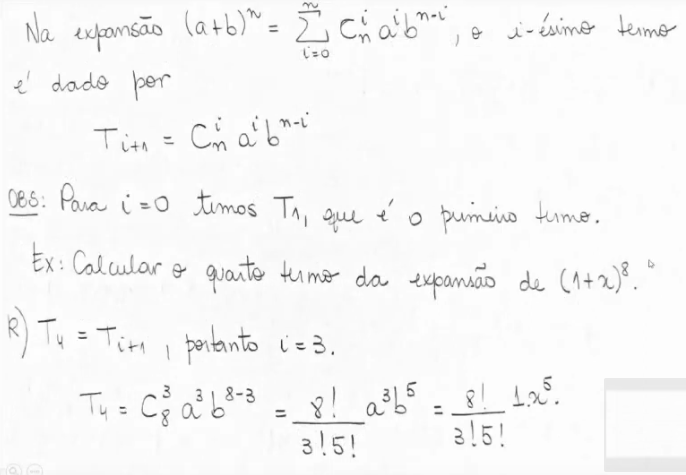 Na expansão (a+b)^n = ∑_{i=0}^{n} C_n^i a^i b^{n-i}, o i-ésimo termo
é dado por
T_{i+1} = C_n^i a^i b^{n-i}
OBS: Para i=0 temos T_1, que é o primeiro termo.
Ex: Calcular o quarto termo da expansão de (1+x)^8.
R) T_4 = T_{i+1}, portanto i=3.
T_4 = C_8^3 a^3 b^{8-3} = 8!/(3!5!) a^3 b^5 = 8!/(3!5!) 1.x^5.